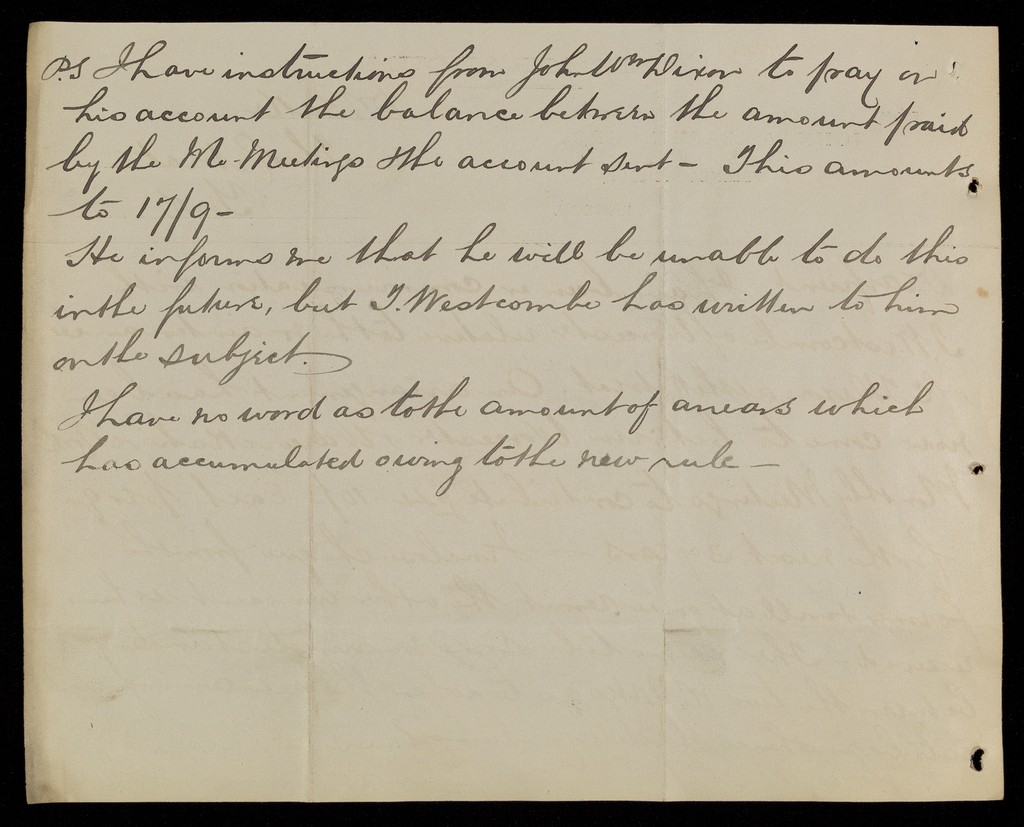 P.S I have instructions from John Wm Dixon to pay on
his account the balance between the amount paid
by the Mo Meetings & the account sent – This amounts
to 17/9 –
He informs me that he will be unable to do this
in the future, but T. Westcombe has written to him
on the subject.
I have no word as to the amount of arrears which
has accumulated owing to the new rule –